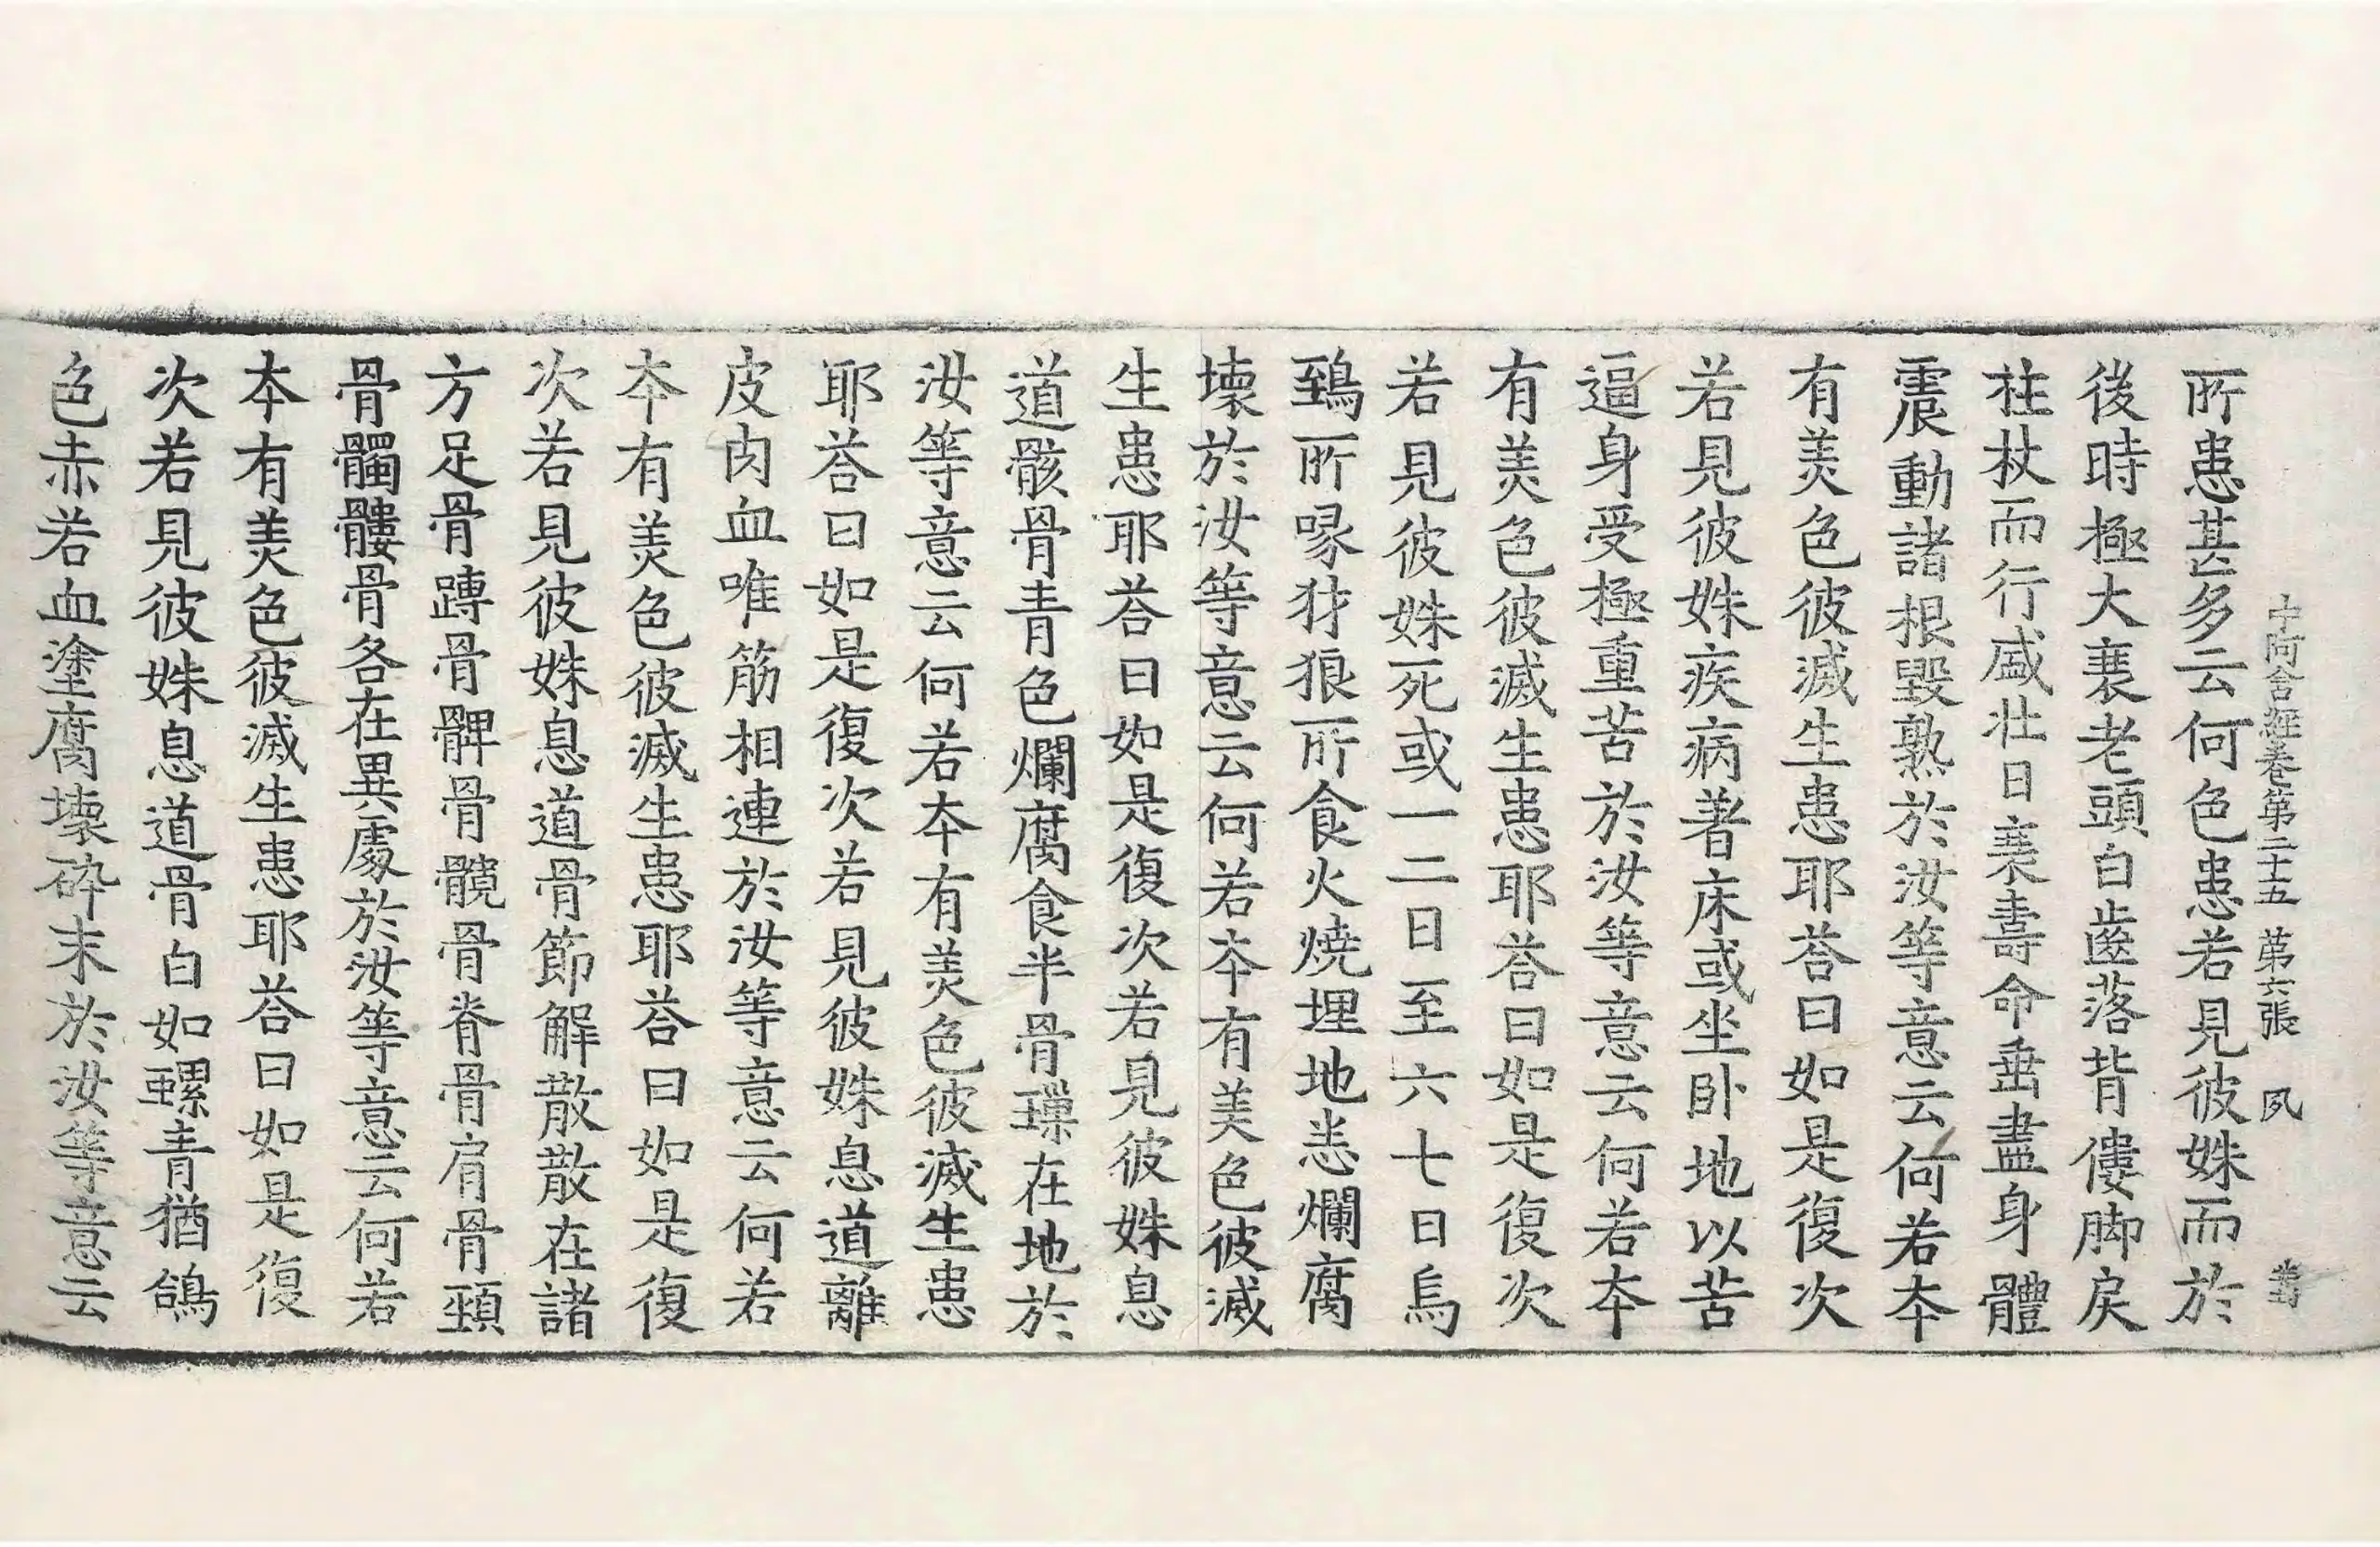 中阿含經卷第二十五 第六張 夙
所患甚多云何色患若見彼姝而於
後時極大衰老頭白齒落背僂脚戾
柱杖而行盛壯日衰壽命垂盡身體
震動諸根毀熟於汝等意云何若本
有美色彼滅生患耶荅曰如是復次
若見彼姝疾病著床或坐卧地以苦
逼身受極重苦於汝等意云何若本
有美色彼滅生患耶荅曰如是復次
若見彼姝死或一二日至六七日烏
鵄所啄豺狼所食火燒埋地悉爛腐
壞於汝等意云何若本有美色彼滅
生患耶荅曰如是復次若見彼姝息
道骸骨青色爛腐食半骨璅在地於
汝等意云何若本有美色彼滅生患
耶荅曰如是復次若見彼姝息道離
皮肉血唯筋相連於汝等意云何若
本有美色彼滅生患耶荅曰如是復
次若見彼姝息道骨節解散散在諸
方足骨䏝骨髀骨髖骨脊骨肩骨頸
骨髑髏骨各在異處於汝等意云何若
本有美色彼滅生患耶荅曰如是復
次若見彼姝息道骨白如螺青猶鴿
色赤若血塗腐壞碎末於汝等意云